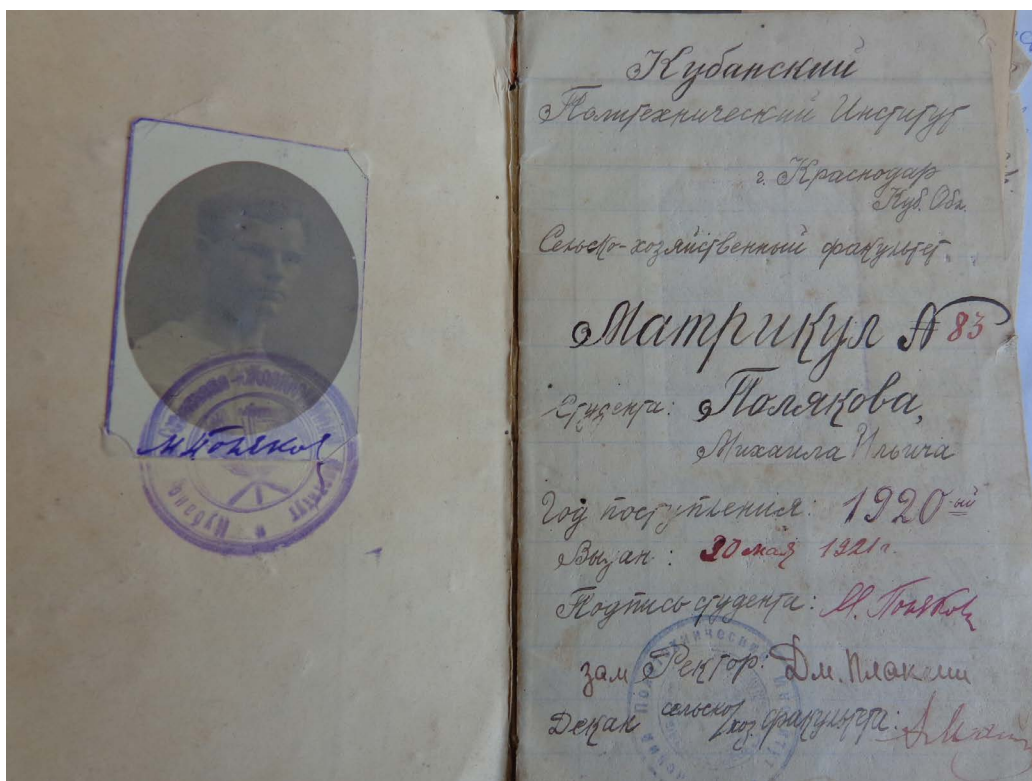 М Поляков
Кубанский
Политехнический Институт
г. Краснодар
Куб. Обл.
Сельско-хозяйственный факультет
Матрикул № 83
Студента: Полякова,
Михаила Ильича
Год поступления: 1920-ый
Выдан: 20 мая 1921 г.
Подпись студента: М. Поляков
зам Ректор: Дм.
Декан сельско/хоз. факультета: